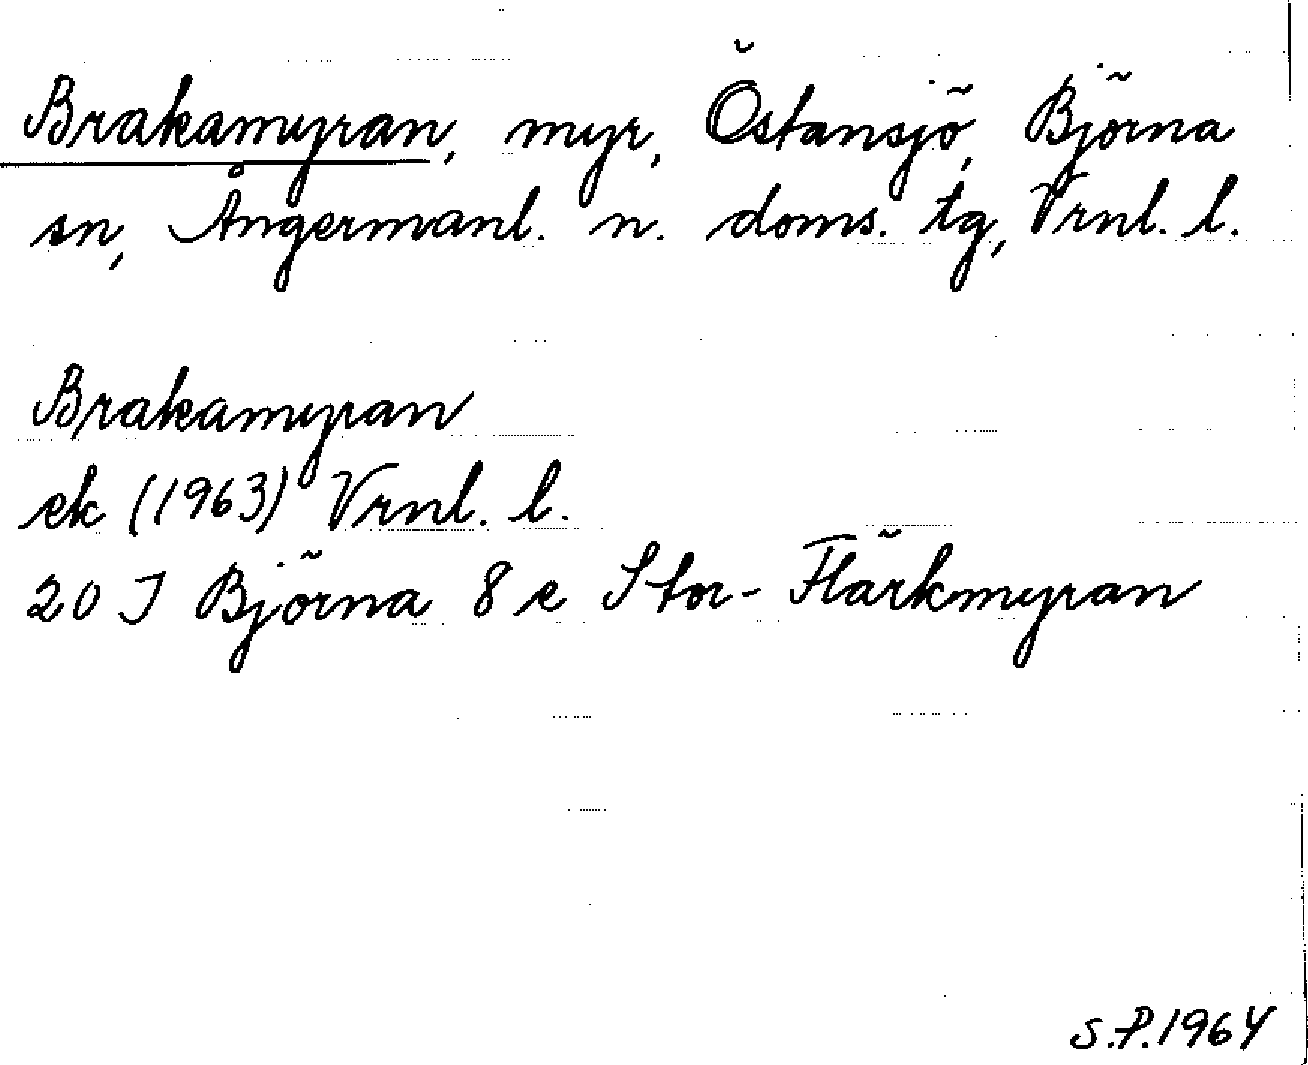 Brakamyran, myr, Östansjö, Björna
sn, Ångermanl. n. doms. tg, Vrnl. l.
Brakamyran
ek (1963) Vrnl. l.
20 I Björna 8 e Stor-Flärkmyran
S.P. 1964